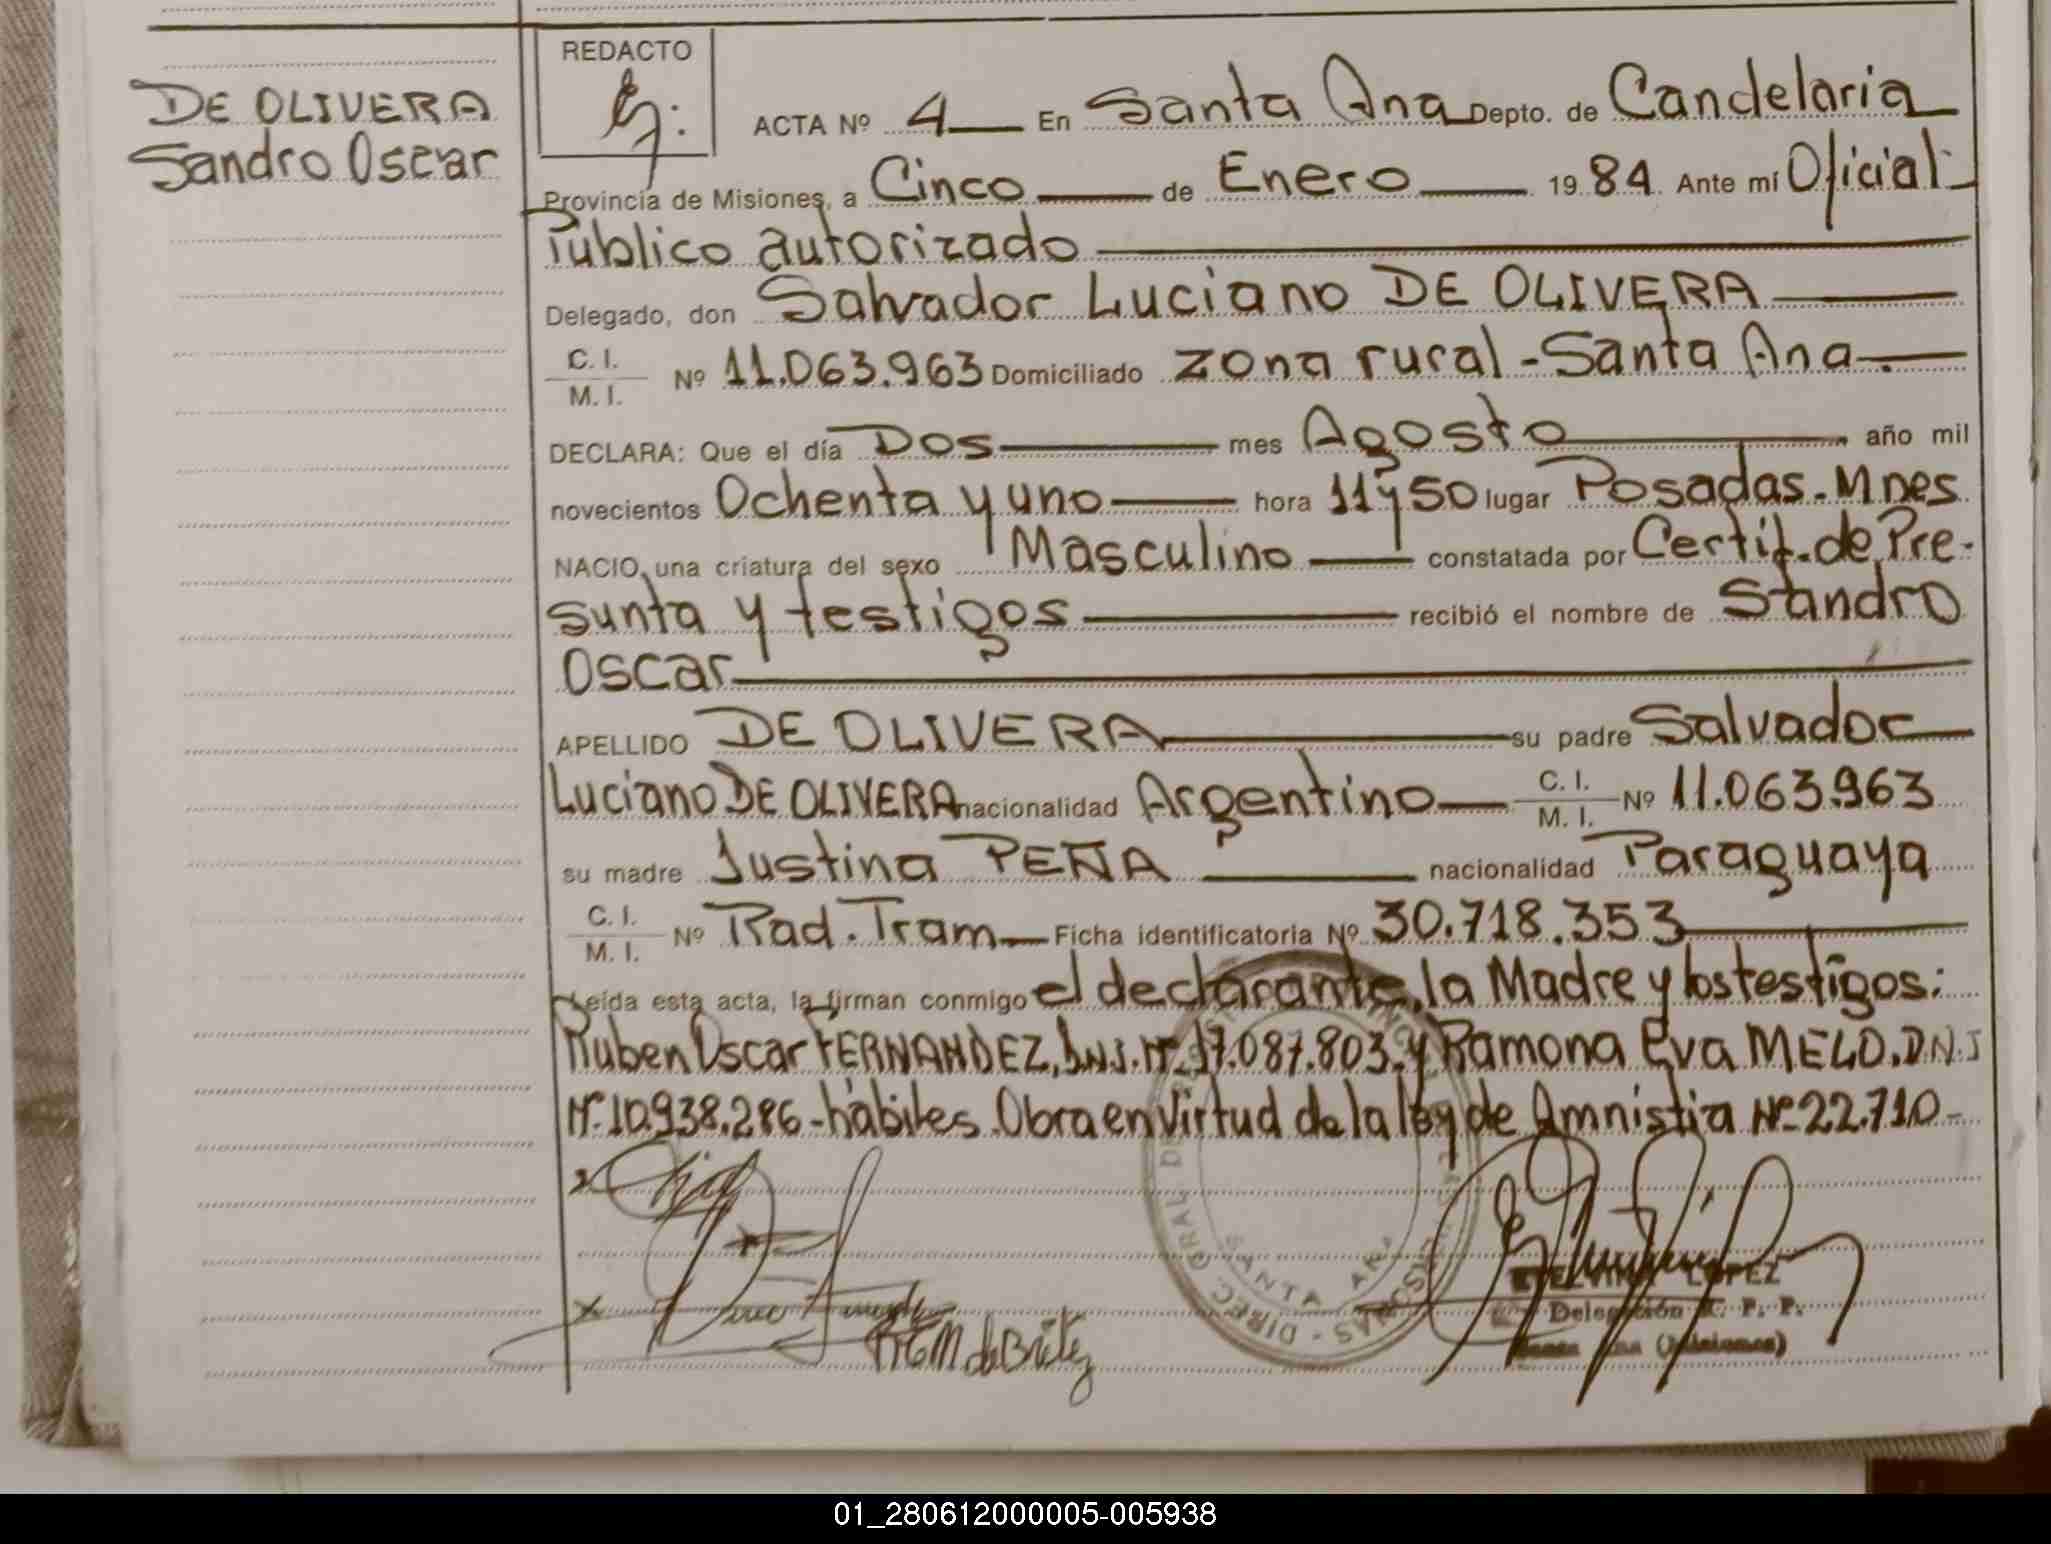 DE OLIVERA
Sandro Oscar
REDACTO
ACTA Nº 4 En Santa Ana Depto. de Candelaria
Provincia de Misiones, a Cinco de Enero 1984 Ante mí Oficial
Público autorizado
Delegado, don Salvador Luciano DE OLIVERA
C. I.
M. I. Nº 11.063.963 Domiciliado zona rural - Santa Ana.
DECLARA: Que el día Dos mes Agosto año mil
novecientos Ochenta y uno hora 11y50 lugar Posadas. Mnes
NACIO una criatura del sexo Masculino constatada por Certif. de Pre-
sunta y testigos recibió el nombre de Sandro
Oscar
APELLIDO DE OLIVERA su padre Salvador
Luciano DE OLIVERA nacionalidad Argentino C. I. M. I. Nº 11.063.963
su madre Justina PEÑA nacionalidad Paraguaya
C. I.
M. I. Nº Rad. Tram Ficha identificatoria Nº 30.718.353
Leída esta acta, la firman conmigo el declarante, la Madre y los testigos:
Ruben Oscar FERNANDEZ, D.N.I. Nº 17.087.803. y Ramona Eva MELO. D.N.I
Nº 10.938.286 - hábiles. Obra en Virtud de la ley de Amnistia Nº 22.710-
DIREC. GRAL DE
SANTA ANA
ELVIRA LOPEZ
Delegación R. P. P.
Santa Ana (Misiones)
REM de Britez
01_280612000005-005938